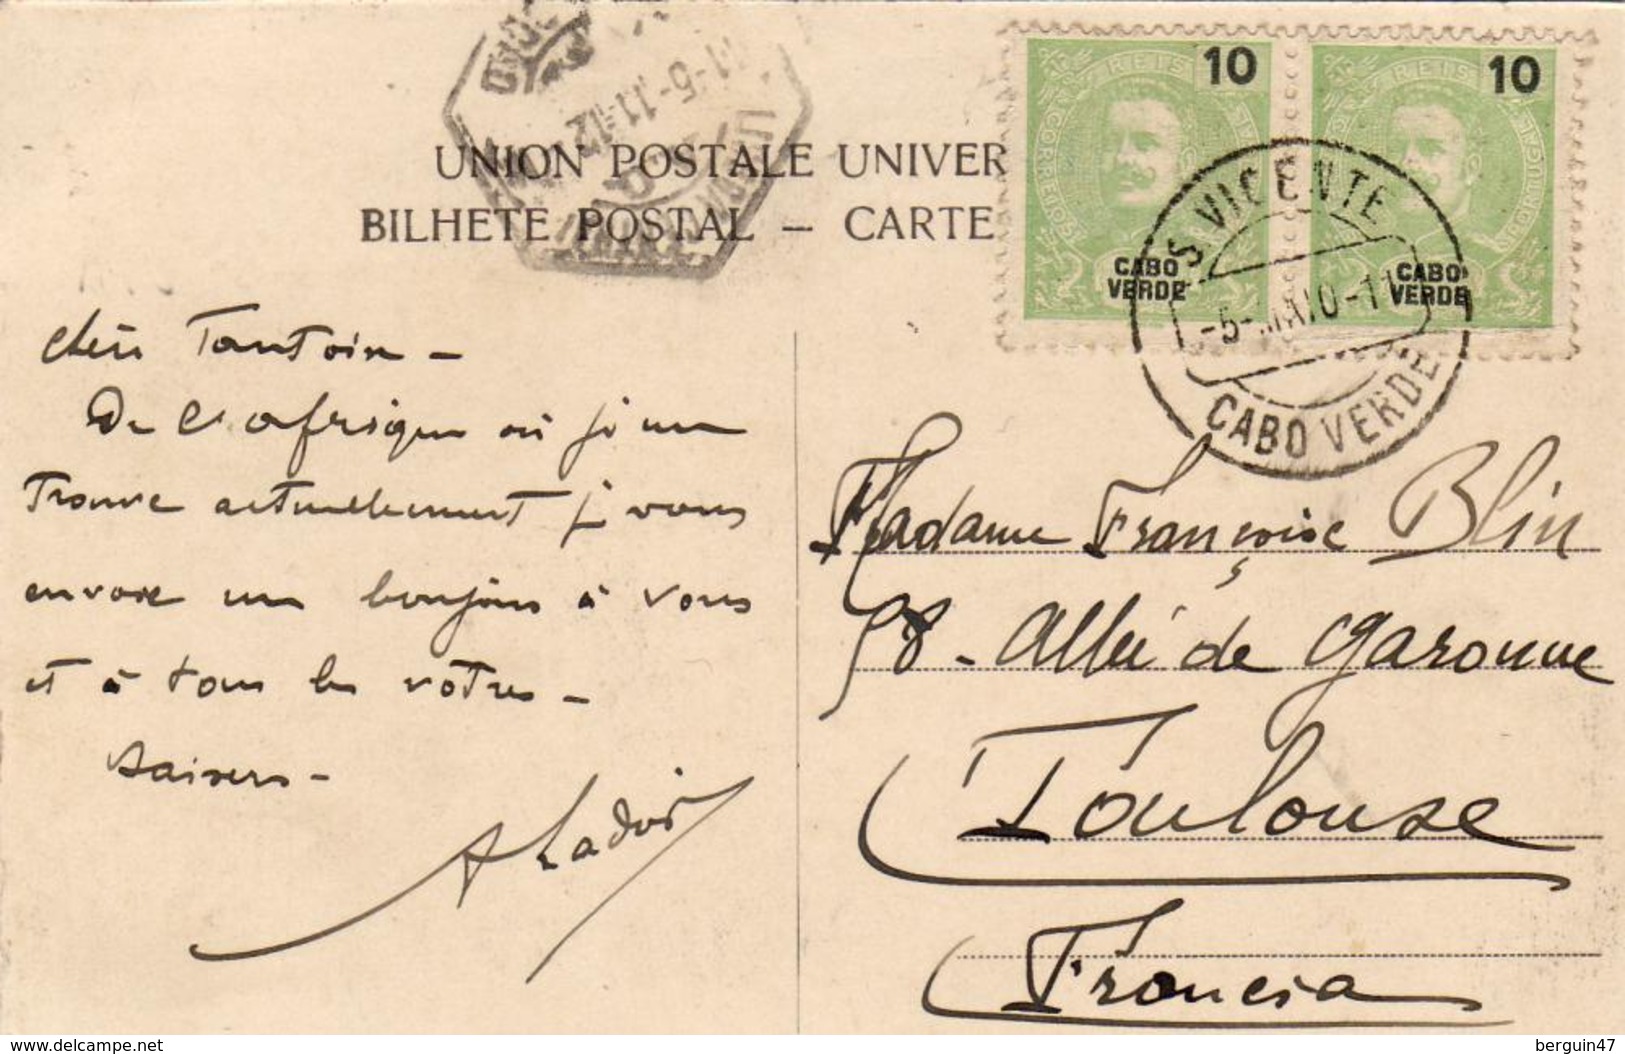 UNION POSTALE UNIVER
BILHETE POSTAL — CARTE
10
REIS
CORREIOS
CABO
VERDE
10
REIS
CORREIOS
PORTUGAL
CABO
VERDE
S. VICENTE
-5-MAIO-11
CABO VERDE
11-5-11-12
chère Tantoin –
De l'afrique où je me
trouve actuellement je vous
envoie un bonjour à vous
et à tous les vôtres –
baisers –
A Ladois
Madame Françoise Blin
58 - Allée de Garonne
Toulouse
Francia
delcampe.net
berguin47